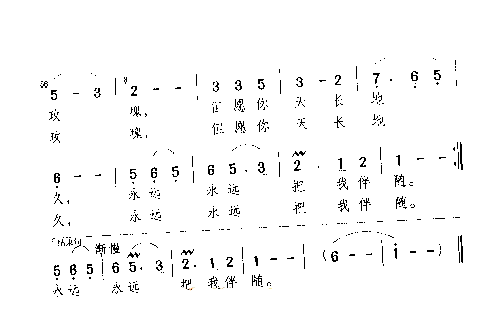 5 - 3 | 2 - - | 3 3 5 | 3 - 2 | 7. 6 5
玫 瑰, 但愿你 天 长 地
玫 瑰, 但愿你 天 长 地
6 - - | 5 6 5 | 6 5. 3 | 2. 1 2 | 1 - - :‖
久, 永远 永远 把 我伴 随。
久, 永远 永远 把 我伴 随。
结束句 渐慢
5 6 5 | 6 5. 3 | 2. 1 2 | 1 - - | (6 - - | i - -) ‖
永远 永远 把 我伴 随。